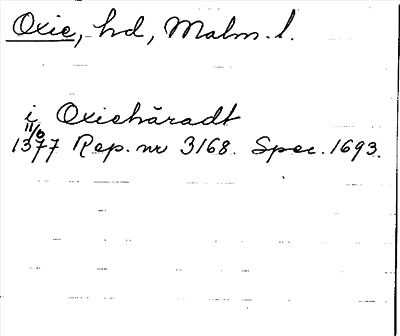 Oxie, hd, Malm. l.
i Oxiehäradt
11/6
1377 Rep. nr 3168. Spec. 1693.